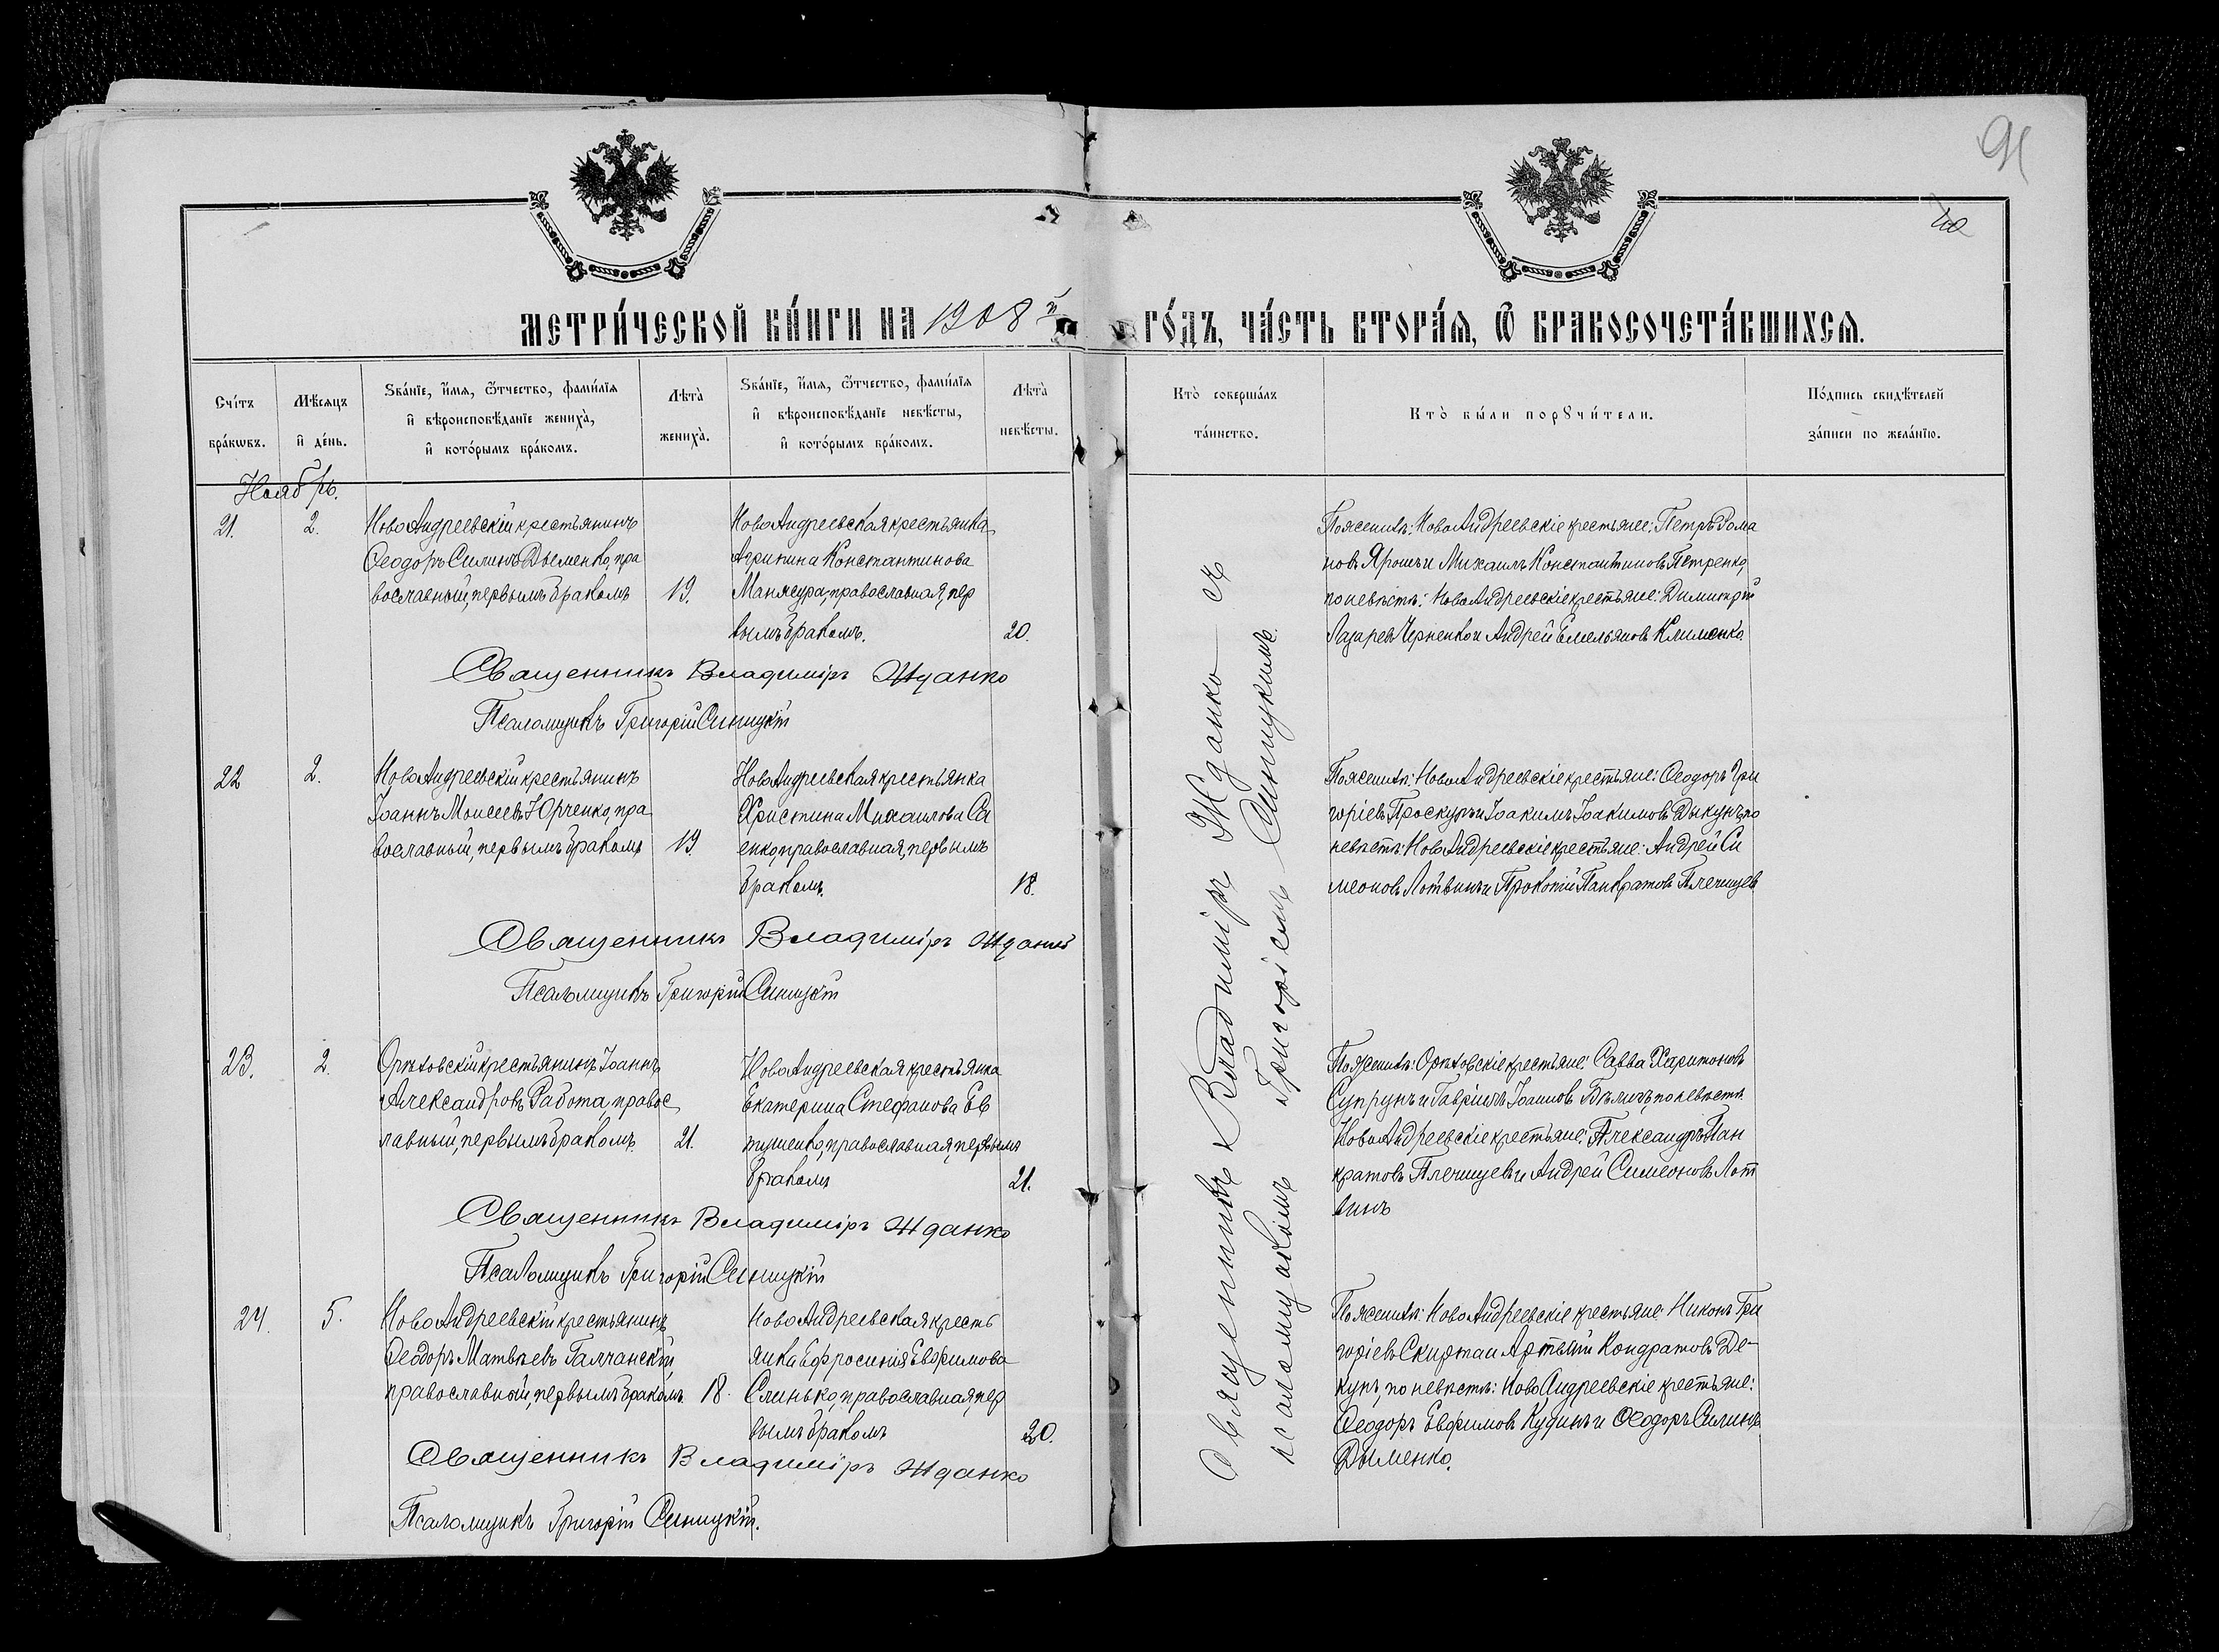 91
40
МЕТРИ́ЧЕСКОЙ КНИ́ГИ НА 1908 й ГО́ДЪ, ЧА́СТЬ ВТОРА́Я, Ѿ БРАКОСОЧЕТА́ВШИХСЯ.
Сче́тъ бра́кѡвъ.
Мѣ́сяцъ и де́нь.
Ѕва́нїе, и́мя, ѻ́тчество, фами́лїя и вѣроисповѣ́данїе жениха̀, и кото́рымъ бра́комъ.
Лѣта̀ жениха̀.
Ѕва́нїе, и́мя, ѻ́тчество, фами́лїя и вѣроисповѣ́данїе невѣ́сты, и кото́рымъ бра́комъ.
Лѣта̀ невѣ́сты.
Кто̀ соверша́лъ та́инство.
Кто̀ бы́ли порꙋчи́тели.
По́дпись свидѣ́телей за́писи по жела́нїю.
Ноябрь.
21.
2.
НовоАндреевскій крестьянинъ
Ѳеодоръ Силинъ Дыменко, пра
вославный, первымъ бракомъ
19.
НовоАндреевская крестьянка
Агрипина Константинова
Манжура, православная, пер
вымъ бракомъ.
20.
По женихѣ: НовоАндреевскіе крестьяне: Петръ Рома
новъ Ярошъ и Михаилъ Константиновъ Петренко,
по невѣстѣ: НовоАндреевскіе крестьяне: Димитрій
Лазаревъ Черненко и Андрей Емельяновъ Клименко.
Священникъ Владиміръ Жданко
Псаломщикъ Григорій Синицкій
22
2.
НовоАндреевскій крестьянинъ
Іоаннъ Моисеевъ Юрченко, пра
вославный, первымъ бракомъ
19.
НовоАндреевская крестьянка
Христина Михаилова Са
енко православная, первымъ
бракомъ.
18.
По женихѣ: НовоАндреевскіе крестьяне: Ѳеодоръ Гри
горіевъ Проскуръ и Іоакимъ Іоакимовъ Дыкунъ, по
невѣстѣ: НовоАндреевскіе крестьяне: Андрей Си
меоновъ Лотвинъ и Прокопій Панкратовъ Плечищевъ
Священникъ Владиміръ Жданко
Псаломщикъ Григорій Синицкій
23.
2.
Орѣховскій крестьянинъ Іоаннъ
Александровъ Работа, правос
лавный, первымъ бракомъ.
21.
НовоАндреевская крестьянка
Екатерина Стефанова Ев
тушенко, православная, первымъ
бракомъ
21.
По женихѣ: Орѣховскіе крестьяне: Савва Харитоновъ
Супрунъ и Гавріилъ Іоанновъ Бѣличъ, по невѣстѣ
НовоАндреевскіе крестьяне: Александръ Пан
кратовъ Плечищевъ и Андрей Симеоновъ Лот
винъ
Священникъ Владиміръ Жданко
Псаломщикъ Григорій Синицкій
24.
5.
НовоАндреевскій крестьянинъ
Ѳеодоръ Матвѣевъ Галчанскій
православный, первымъ бракомъ.
18.
НовоАндреевская кресть
янка Евфросинія Евфимова
Слинько, православная, пер
вымъ бракомъ
20.
По женихѣ: НовоАндреевскіе крестьяне: Никонъ Гри
горіевъ Скирта и Артемій Кондратовъ Де-
кунъ, по невѣстѣ: НовоАндреевскіе крестьяне:
Ѳеодоръ Евфимовъ Кудинъ и Ѳеодоръ Силинъ
Дыменко.
Священникъ Владиміръ Жданко
Псаломщикъ Григорій Синицкій.
Священникъ Владиміръ Жданко съ
псаломщикомъ Григоріемъ Синицкимъ.